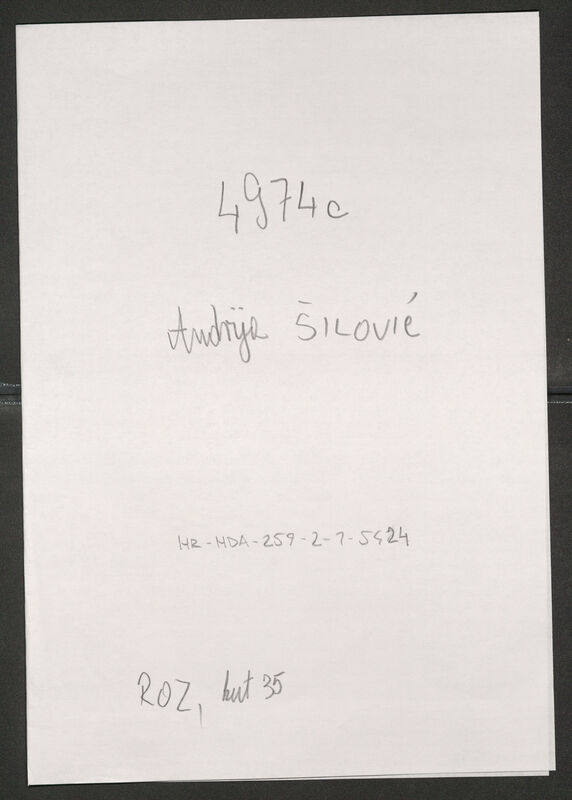 4974c
Andrija ŠILOVIĆ
HR-HDA-259-2-7-5424
ROZ, kut 35